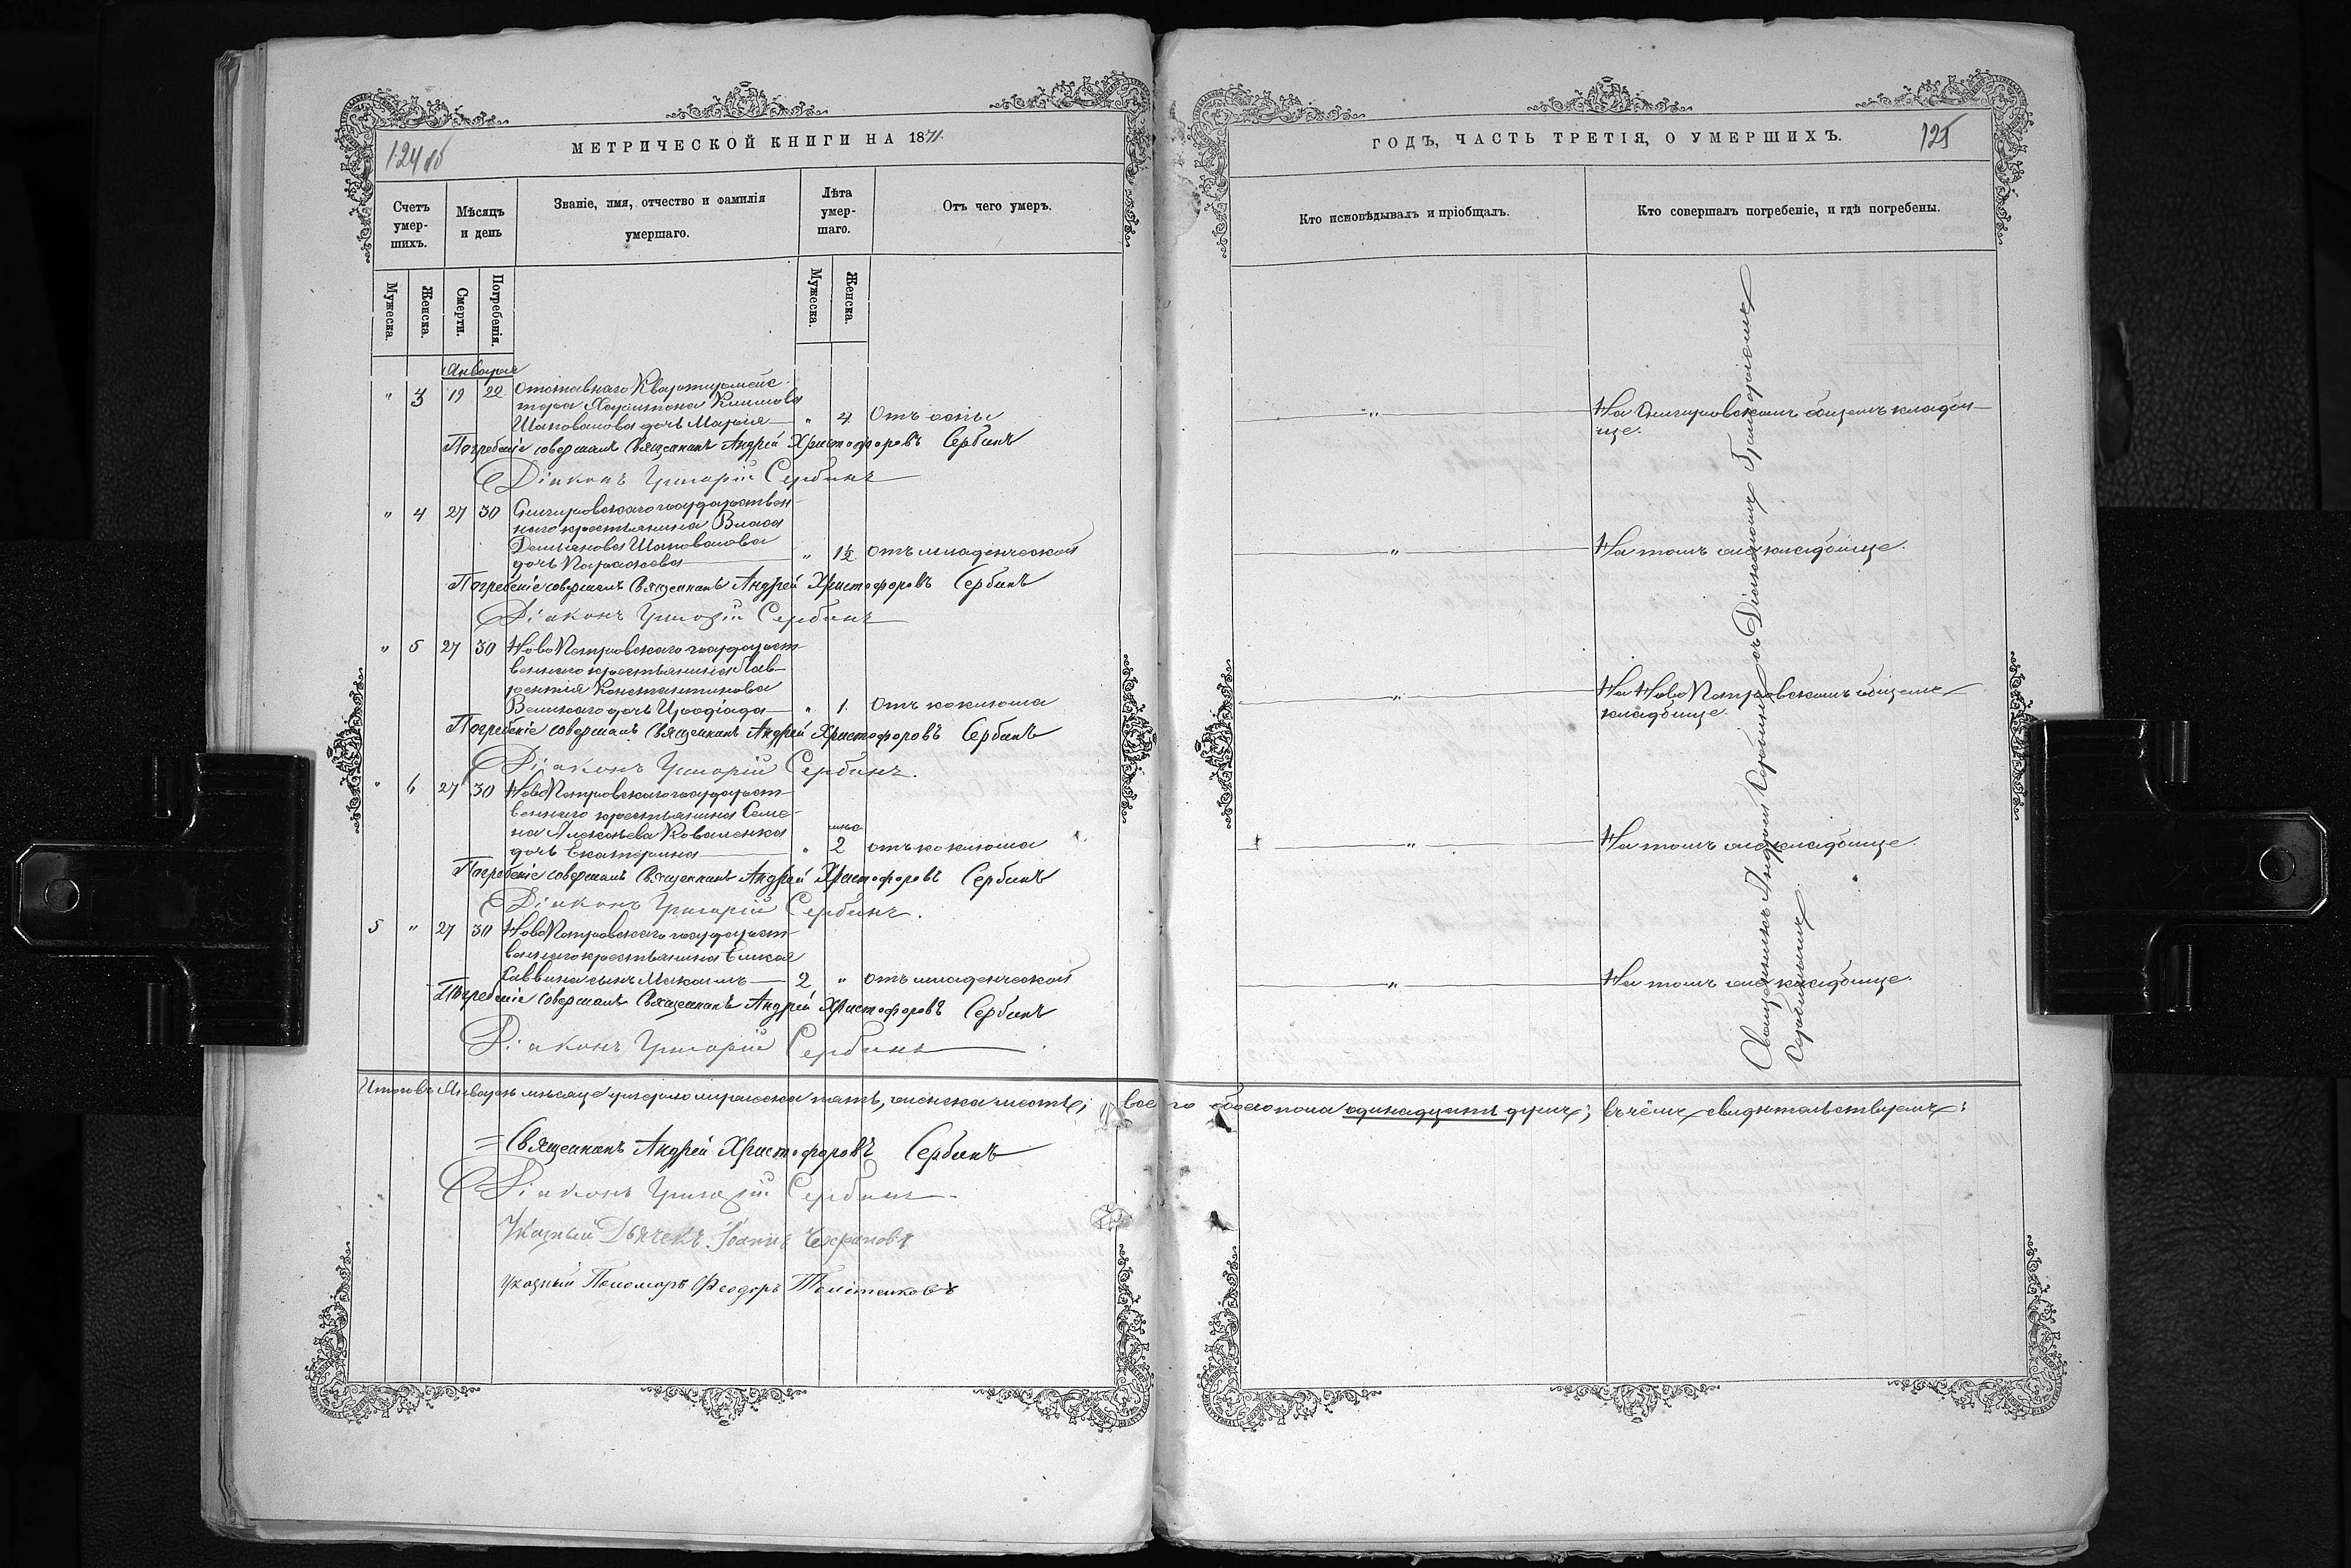 124 об
МЕТРИЧЕСКОЙ КНИГИ НА 1871
Счетъ умер-
шихъ.
Мѣсяцъ
и день
Званіе, имя, отчество и фамилія
умершаго.
Лѣта
умер-
шаго.
Отъ чего умеръ.
Мужеска.
Женска.
Смерти.
Погребенія.
Мужеска.
Женска.
Января
" 3 19 22 Отставнаго Квартирмейс-
тера Харитона Климова
Шаповалова дочь Марія " 4 Отъ оспы
Погребеніе совершалъ Священникъ Андрей Христофоровъ Сербинъ
Діаконъ Григорій Сербинъ
" 4 27 30 Снигировскаго государствен-
наго крестьянина Власа
Демьянова Шаповалова
дочь Параскева " 1½ Отъ младенческой
Погребеніе совершалъ Священникъ Андрей Христофоровъ Сербинъ
Діаконъ Григорій Сербинъ
" 5 27 30 НовоПетровскаго государст-
веннаго крестьянина Лав-
рентія Константинова
дочь Иродіада " 1 Отъ коклюша
Погребеніе совершалъ Священникъ Андрей Христофоровъ Сербинъ
Діаконъ Григорій Сербинъ.
" 6 27 30 НовоПетровскаго государст-
веннаго крестьянина Семе-
на Алексѣева Коваленка
дочь Екатерина " 2 отъ коклюша
Погребеніе совершалъ Священникъ Андрей Христофоровъ Сербинъ
Діаконъ Григорій Сербинъ.
5 " 27 30 НовоПетровскаго государст-
веннаго крестьянина
Саввина сынъ Максимъ 2 " отъ младенческой
Погребеніе совершалъ Священникъ Андрей Христофоровъ Сербинъ
Діаконъ Григорій Сербинъ
Итого въ Январѣ мѣсяцѣ умерло мужеска пять, женска шесть; а всего обоего пола одинадцать душъ; въ чёмъ свидѣтельствуемъ:
Священникъ Андрей Христофоровъ Сербинъ
Діаконъ Григорій Сербинъ
Указный Дьячекъ Іоаннъ
указный Пономарь Феодоръ
ГОДЪ, ЧАСТЬ ТРЕТІЯ, О УМЕРШИХЪ.
125
Кто исповѣдывалъ и пріобщалъ.
Кто совершалъ погребеніе, и гдѣ погребены.
" На Снигировскомъ общемъ кладби-
ще.
" На томъ же кладбище.
" На НовоПетровскомъ общемъ
кладбище.
" На томъ же кладбище.
" На томъ же кладбище.
Священникъ Андрей Сербинъ съ Діакономъ Григоріемъ
Сербинымъ